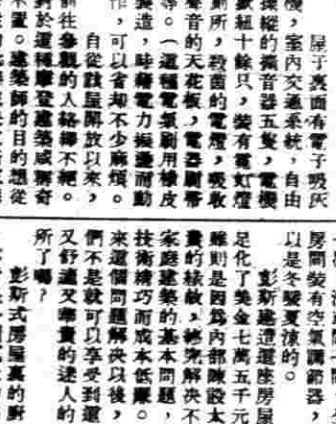 屋子裏面有電子吸灰
機，室內交通系統，自由
操縱的擴音器五隻，電機
鈕十餘只，裝有電虹燈
廁所，殺菌的電燈，吸收
聲音的天花板，電器刷帶
等。（這種電氣刷用橡皮
製造，時藉電力振盪而動
作，可以省却不少麻煩。
自從該屋開放以來，
前往參觀的人絡繹不絕。
對於這種摩登建築咸稱奇
不置。建築師的目的想從
房間裝有空氣調節器，
以是冬暖夏涼的。
彭斯建造這座房屋
足化了美金七萬五千元
雖則是因為內部陳設太
貴的緣故，終究解決不
家庭建築的基本問題，
技術精巧而成本低廉。
來這個問題解決以後，
們不是就可以享受到這
又舒適又華貴的迷人的
所了嗎？
彭斯式房屋裏的廚